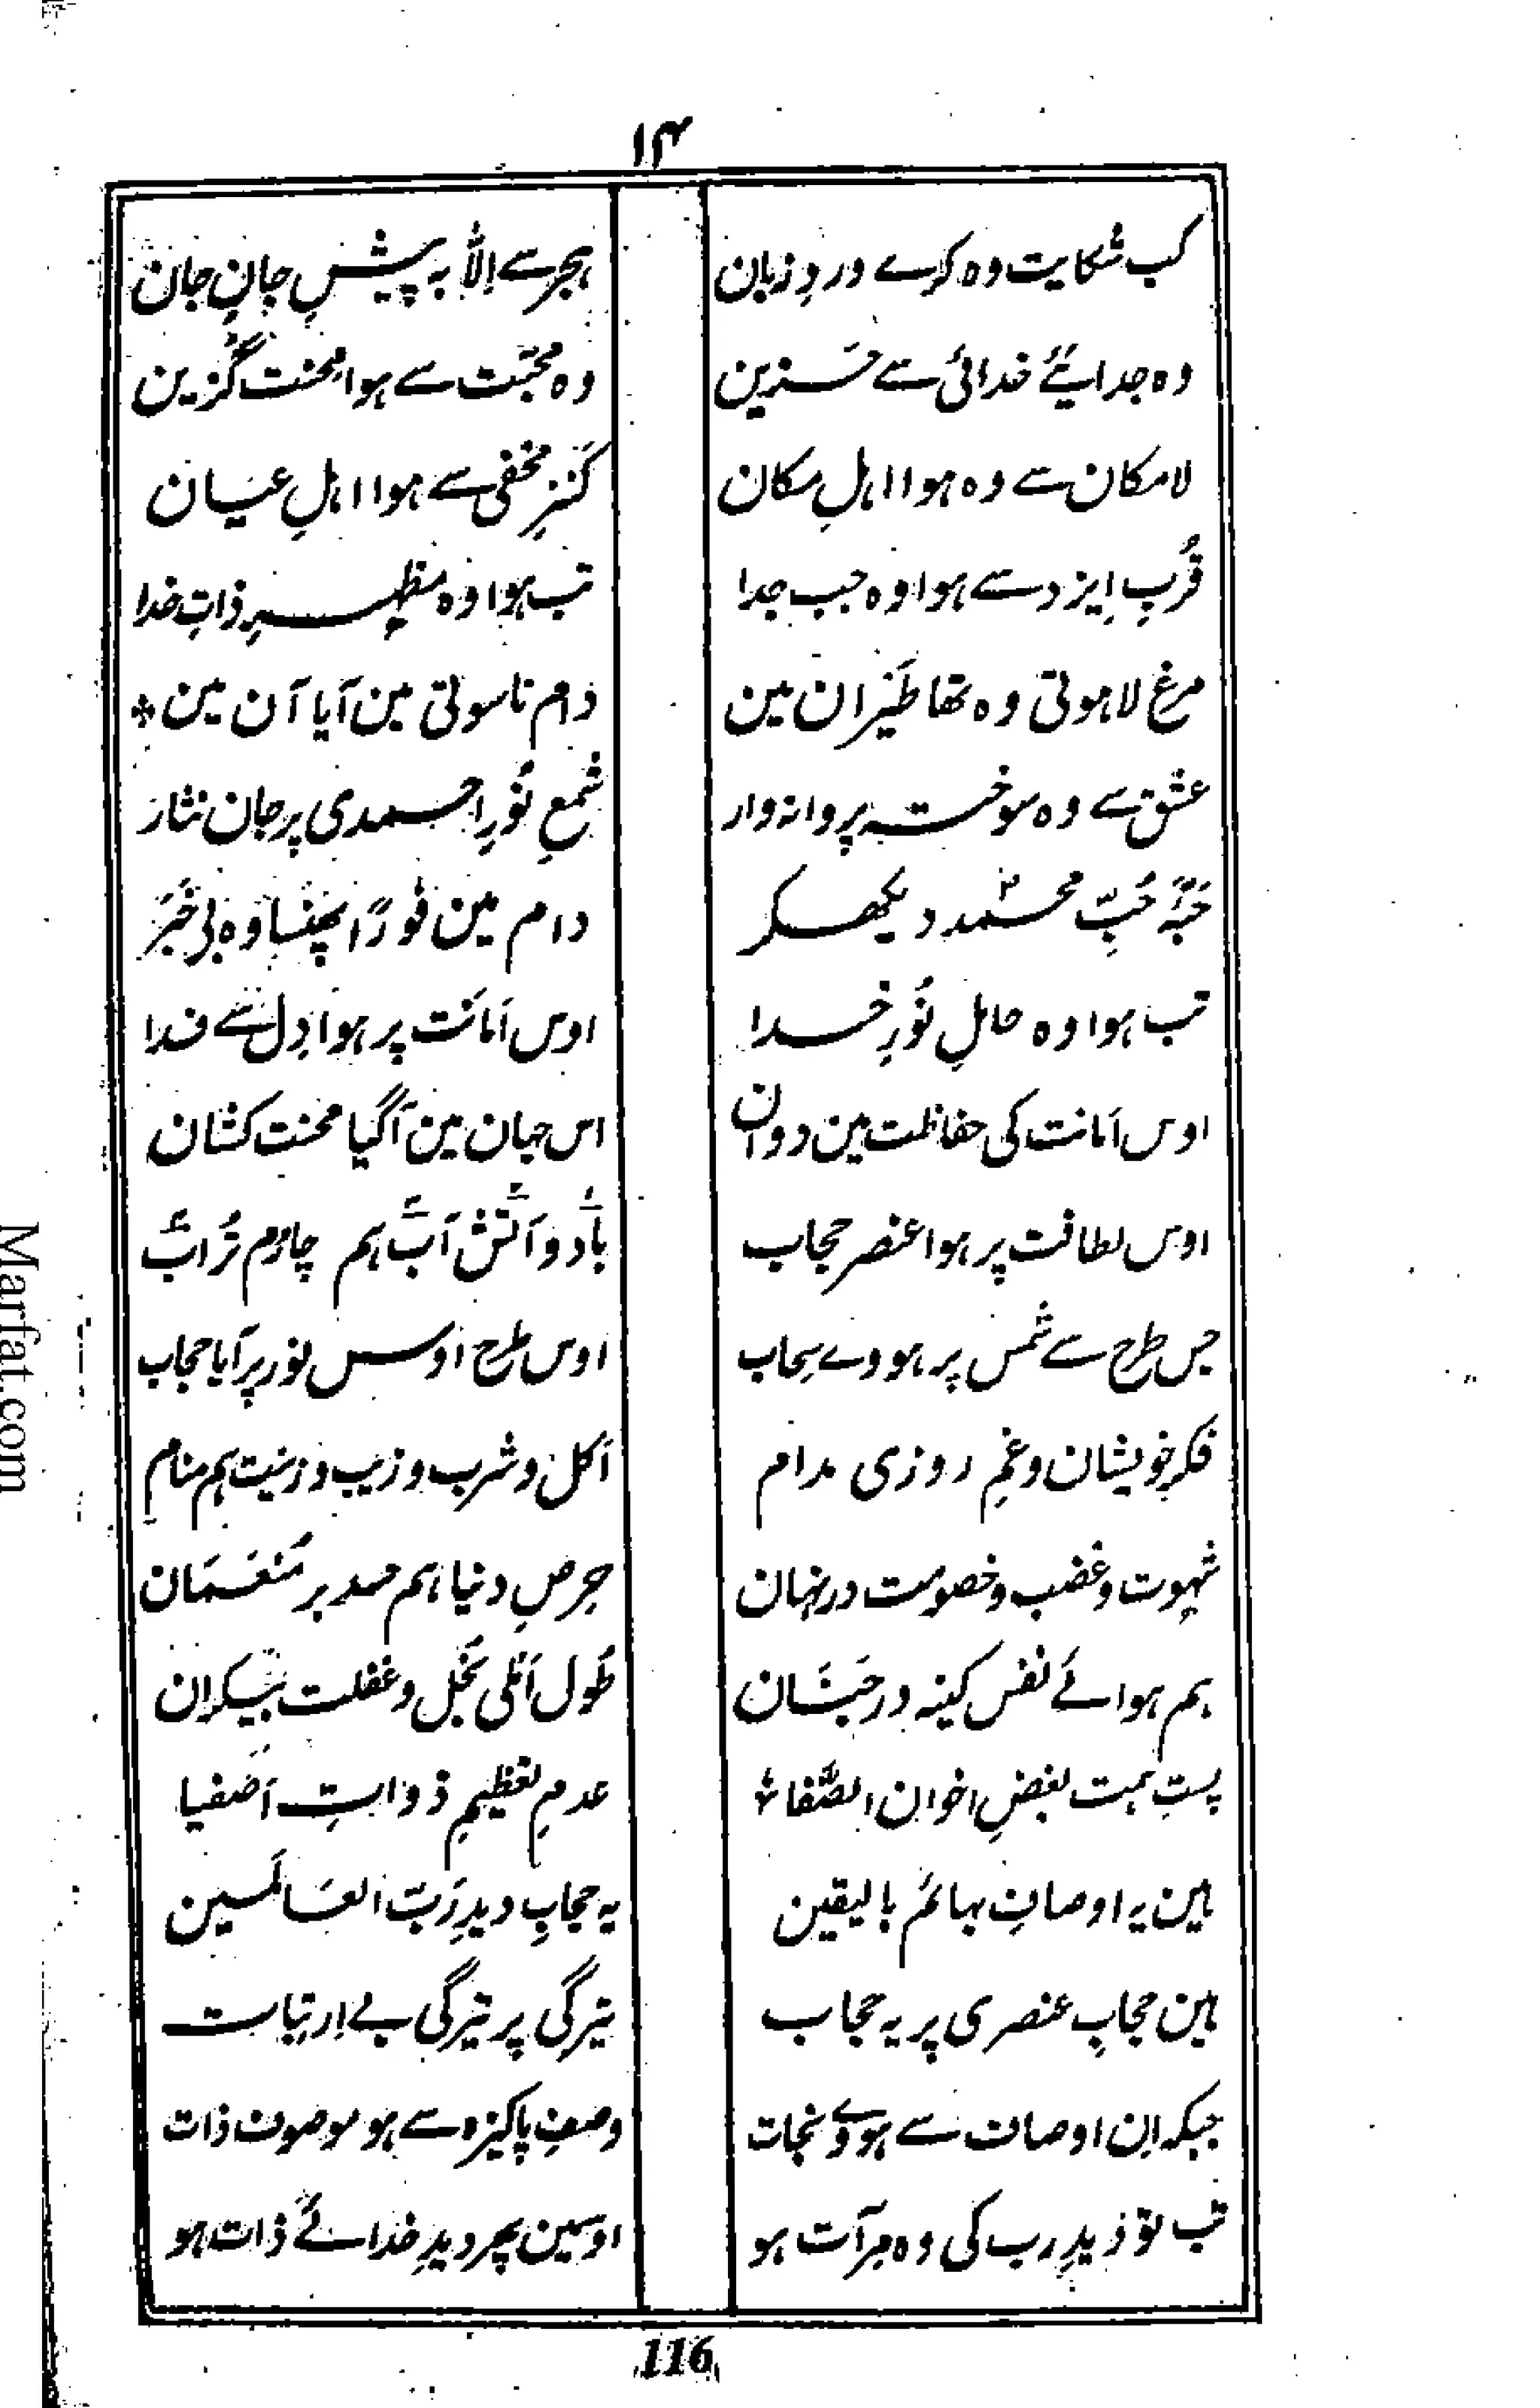 ۱۴
کب شکایت وہ کرے دردِ زبان ہجر سے اِلّا بہ پیشِ جانِ جان
وہ جدایئے خدائی سے حزین وہ محبّت سے ہوا محنت گُزین
لامکان سے وہ ہوا اہلِ مکان کَنزِ مخفی سے ہوا اہلِ عیان
قُربِ ایزد سے ہوا وہ جب جدا تب ہوا وہ مظہرِ ذاتِ خدا
مرغ لاہوتی وہ تھا طَیَران مین دام ناسوتی مین آیا آن مین
عشق سے وہ سوختہ پروانہ وار شمعِ نُورِ احمدی پر جان نثار
حَبّہٗ حُبِّ محمّد دیکھکر دام مین فورًا پھنسا وہ بی خَبَر
تب ہوا وہ حاملِ نُورِ خدا اوس اَمانَت پر ہوا دِل سے فدا
اوس اَمانت کی حفاظت مین دوان اس جہان مین آگیا محنت کشان
اوس لطافت پر ہوا عنصر حجاب بادو آتش آب ہم چارم تُراب
جس طرح سے شمس پر ہووے سحاب اوس طرح اوس نور پر آیا حجاب
فکر خویشان و غمِ روزی مدام اَکل و شرب و زیب و زینت ہم منام
شہوت و غضب و خصومت در نہان حِرصِ دنیا ہم حسد بر مُنعَمَان
ہم ہوائے نفس کینہ در جَنَان طُول اَملی بُخل و غفلت بیکران
پستِ ہمت بغضِ اخوان الصّفاء عدمِ تعظیمِ ذواتِ اَصفیا
ہین یہ اوصافِ بہائم بالیقین یہ حجابِ دیدِ رَبّ العَالَمین
ہین حجابِ عنصری پر یہ حجاب تیرگی پر تیرگی بے ارتیاب
جبکہ اِن اوصاف سے ہووے نجات وصفِ پاکیزہ سے ہو موصوف ذات
تب تو دیدِ رب کی وہ مِرآت ہو اوسمین پھر دیدِ خدائے ذات ہو
116
Marfat.com